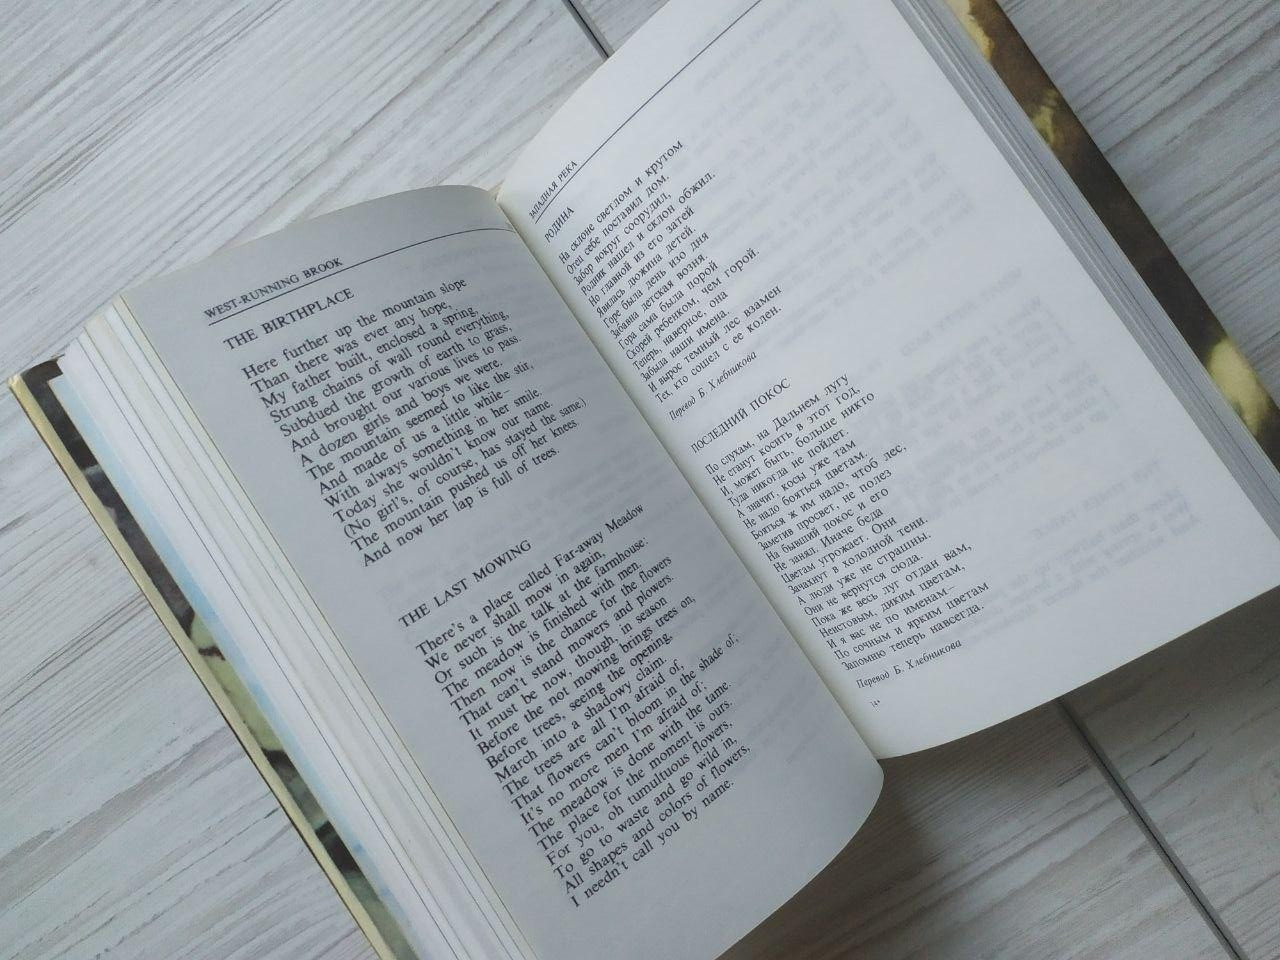 WEST-RUNNING BROOK
THE BIRTHPLACE
Here further up the mountain slope
Than there was ever any hope,
My father built, enclosed a spring,
Strung chains of wall round everything,
Subdued the growth of earth to grass,
And brought our various lives to pass.
A dozen girls and boys we were.
The mountain seemed to like the stir,
And made of us a little while—
With always something in her smile.
Today she wouldn't know our name.
(No girl's, of course, has stayed the same.)
The mountain pushed us off her knees.
And now her lap is full of trees.
THE LAST MOWING
There's a place called Far-away Meadow
We never shall mow in again,
Or such is the talk at the farmhouse:
The meadow is finished with men.
Then now is the chance for the flowers
That can't stand mowers and plowers.
It must be now, though, in season
Before the not mowing brings trees on,
Before trees, seeing the opening,
March into a shadowy claim.
The trees are all I'm afraid of,
That flowers can't bloom in the shade of;
It's no more men I'm afraid of;
The meadow is done with the tame.
The place for the moment is ours
For you, oh tumultuous flowers,
To go to waste and go wild in,
All shapes and colors of flowers,
I needn't call you by name.
ЗАПАДНАЯ РЕКА
РОДИНА
На склоне светлом и крутом
Отец себе поставил дом.
Забор вокруг соорудил,
Родник нашел и склон обжил.
Но главной из его затей
Явилась дюжина детей.
Горе была день изо дня
Забавна детская возня,
Гора сама была порой
Скорей ребенком, чем горой.
Теперь, наверное, она
Забыла наши имена.
И вырос темный лес взамен
Тех, кто сошел с ее колен.
Перевод Б. Хлебникова
ПОСЛЕДНИЙ ПОКОС
По слухам, на Дальнем лугу
Не станут косить в этот год,
И, может быть, больше никто
Туда никогда не пойдет.
А значит, косы уже там
Не надо бояться цветам.
Бояться ж им надо, чтоб лес,
Заметив просвет, не полез
На бывший покос и его
Не занял. Иначе беда
Цветам угрожает. Они
Зачахнут в холодной тени.
А люди уже не страшны.
Они не вернутся сюда.
Пока же весь луг отдан вам,
Неистовым, диким цветам,
И я вас не по именам—
По сочным и ярким цветам
Запомню теперь навсегда.
Перевод Б. Хлебникова
14*